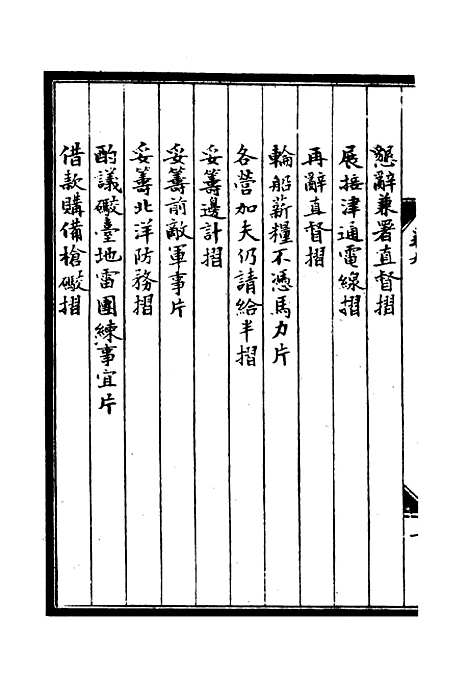 懇辭兼署直督摺
展接津通電線摺
再辭直督摺
輪船薪糧不憑馬力片
各營加夫仍請給半摺
妥籌邊計摺
妥籌前敵軍事片
妥籌北洋防務摺
酌議礮臺地雷團練事宜片
借款購備槍礮摺